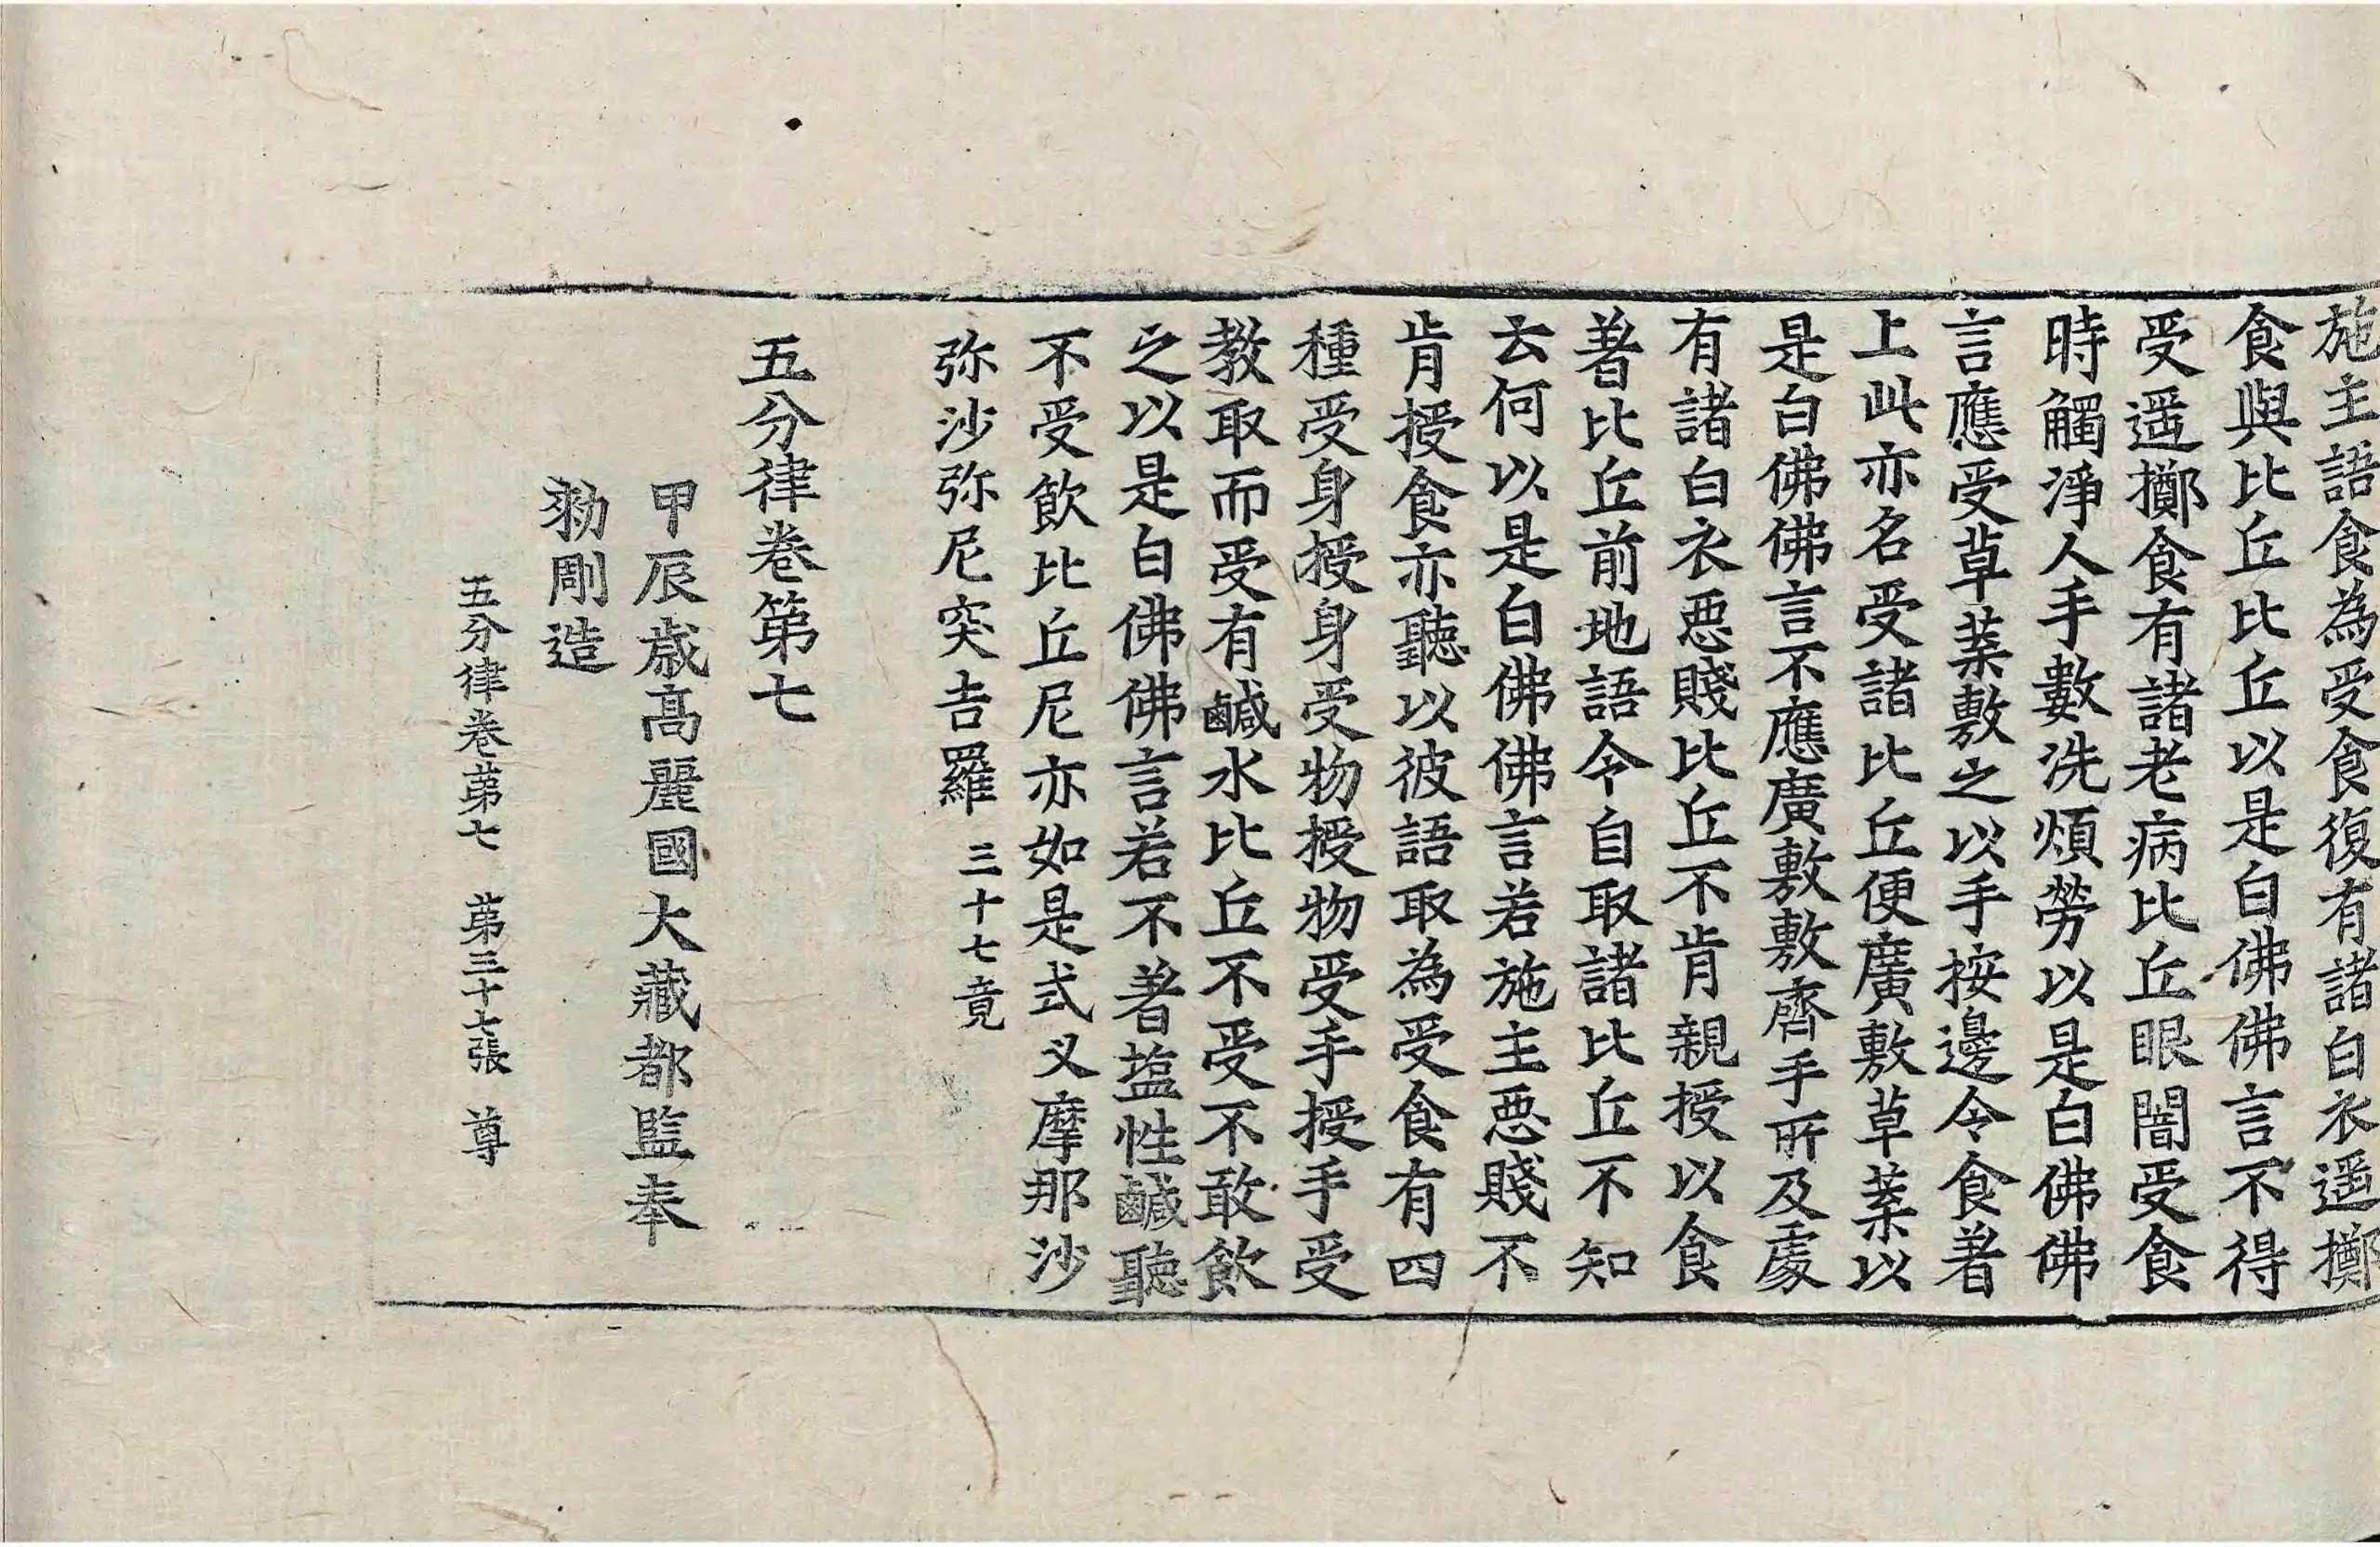 施主語食為受食復有諸白衣遥擲
食與比丘比丘以是白佛佛言不得
受遥擲食有諸老病比丘眼闇受食
時觸淨人手數洗煩勞以是白佛佛
言應受草葉敷之以手按邊令食著
上此亦名受諸比丘便廣敷草葉以
是白佛佛言不應廣敷敷齊手所及處
有諸白衣惡賤比丘不肯親授以食
著比丘前地語令自取諸比丘不知
云何以是白佛佛言若施主惡賤不
肯授食亦聽以彼語取為受食有四
種受身授身受物授物受手授手受
教取而受有鹹水比丘不受不敢飲
之以是白佛佛言若不著塩性鹹聽
不受飲比丘尼亦如是式叉摩那沙
弥沙弥尼突吉羅 三十七竟
五分律卷第七
甲辰歲高麗國大藏都監奉
勑彫造
五分律卷第七 第三十七張 尊